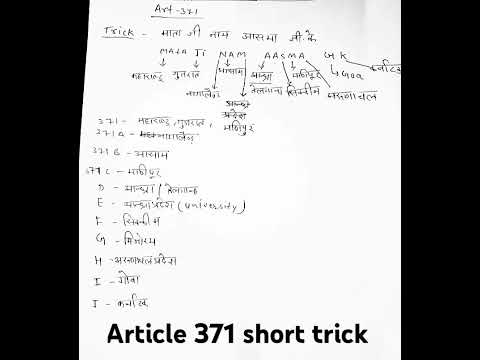 Art-371
Trick - माता जी नाम आसमा जी.के
MATA JI NAM AASMA GK
महाराष्ट्र गुजरात आसाम आन्ध्रा मणीपुर Goa
नागालैंड तेलंगाना सिक्कीम
371 - महाराष्ट्र, गुजरात,
371 A - नागालैंड
371 B - आसाम
371 C - मणीपूर
D - आन्ध्रा / तेलंगाना
E - आन्ध्राप्रदेश (University)
F - सिक्कीम
G - मिजोरम
H - अरुणाचल प्रदेश
I - गोवा
J - कर्नाटक
Article 371 short trick